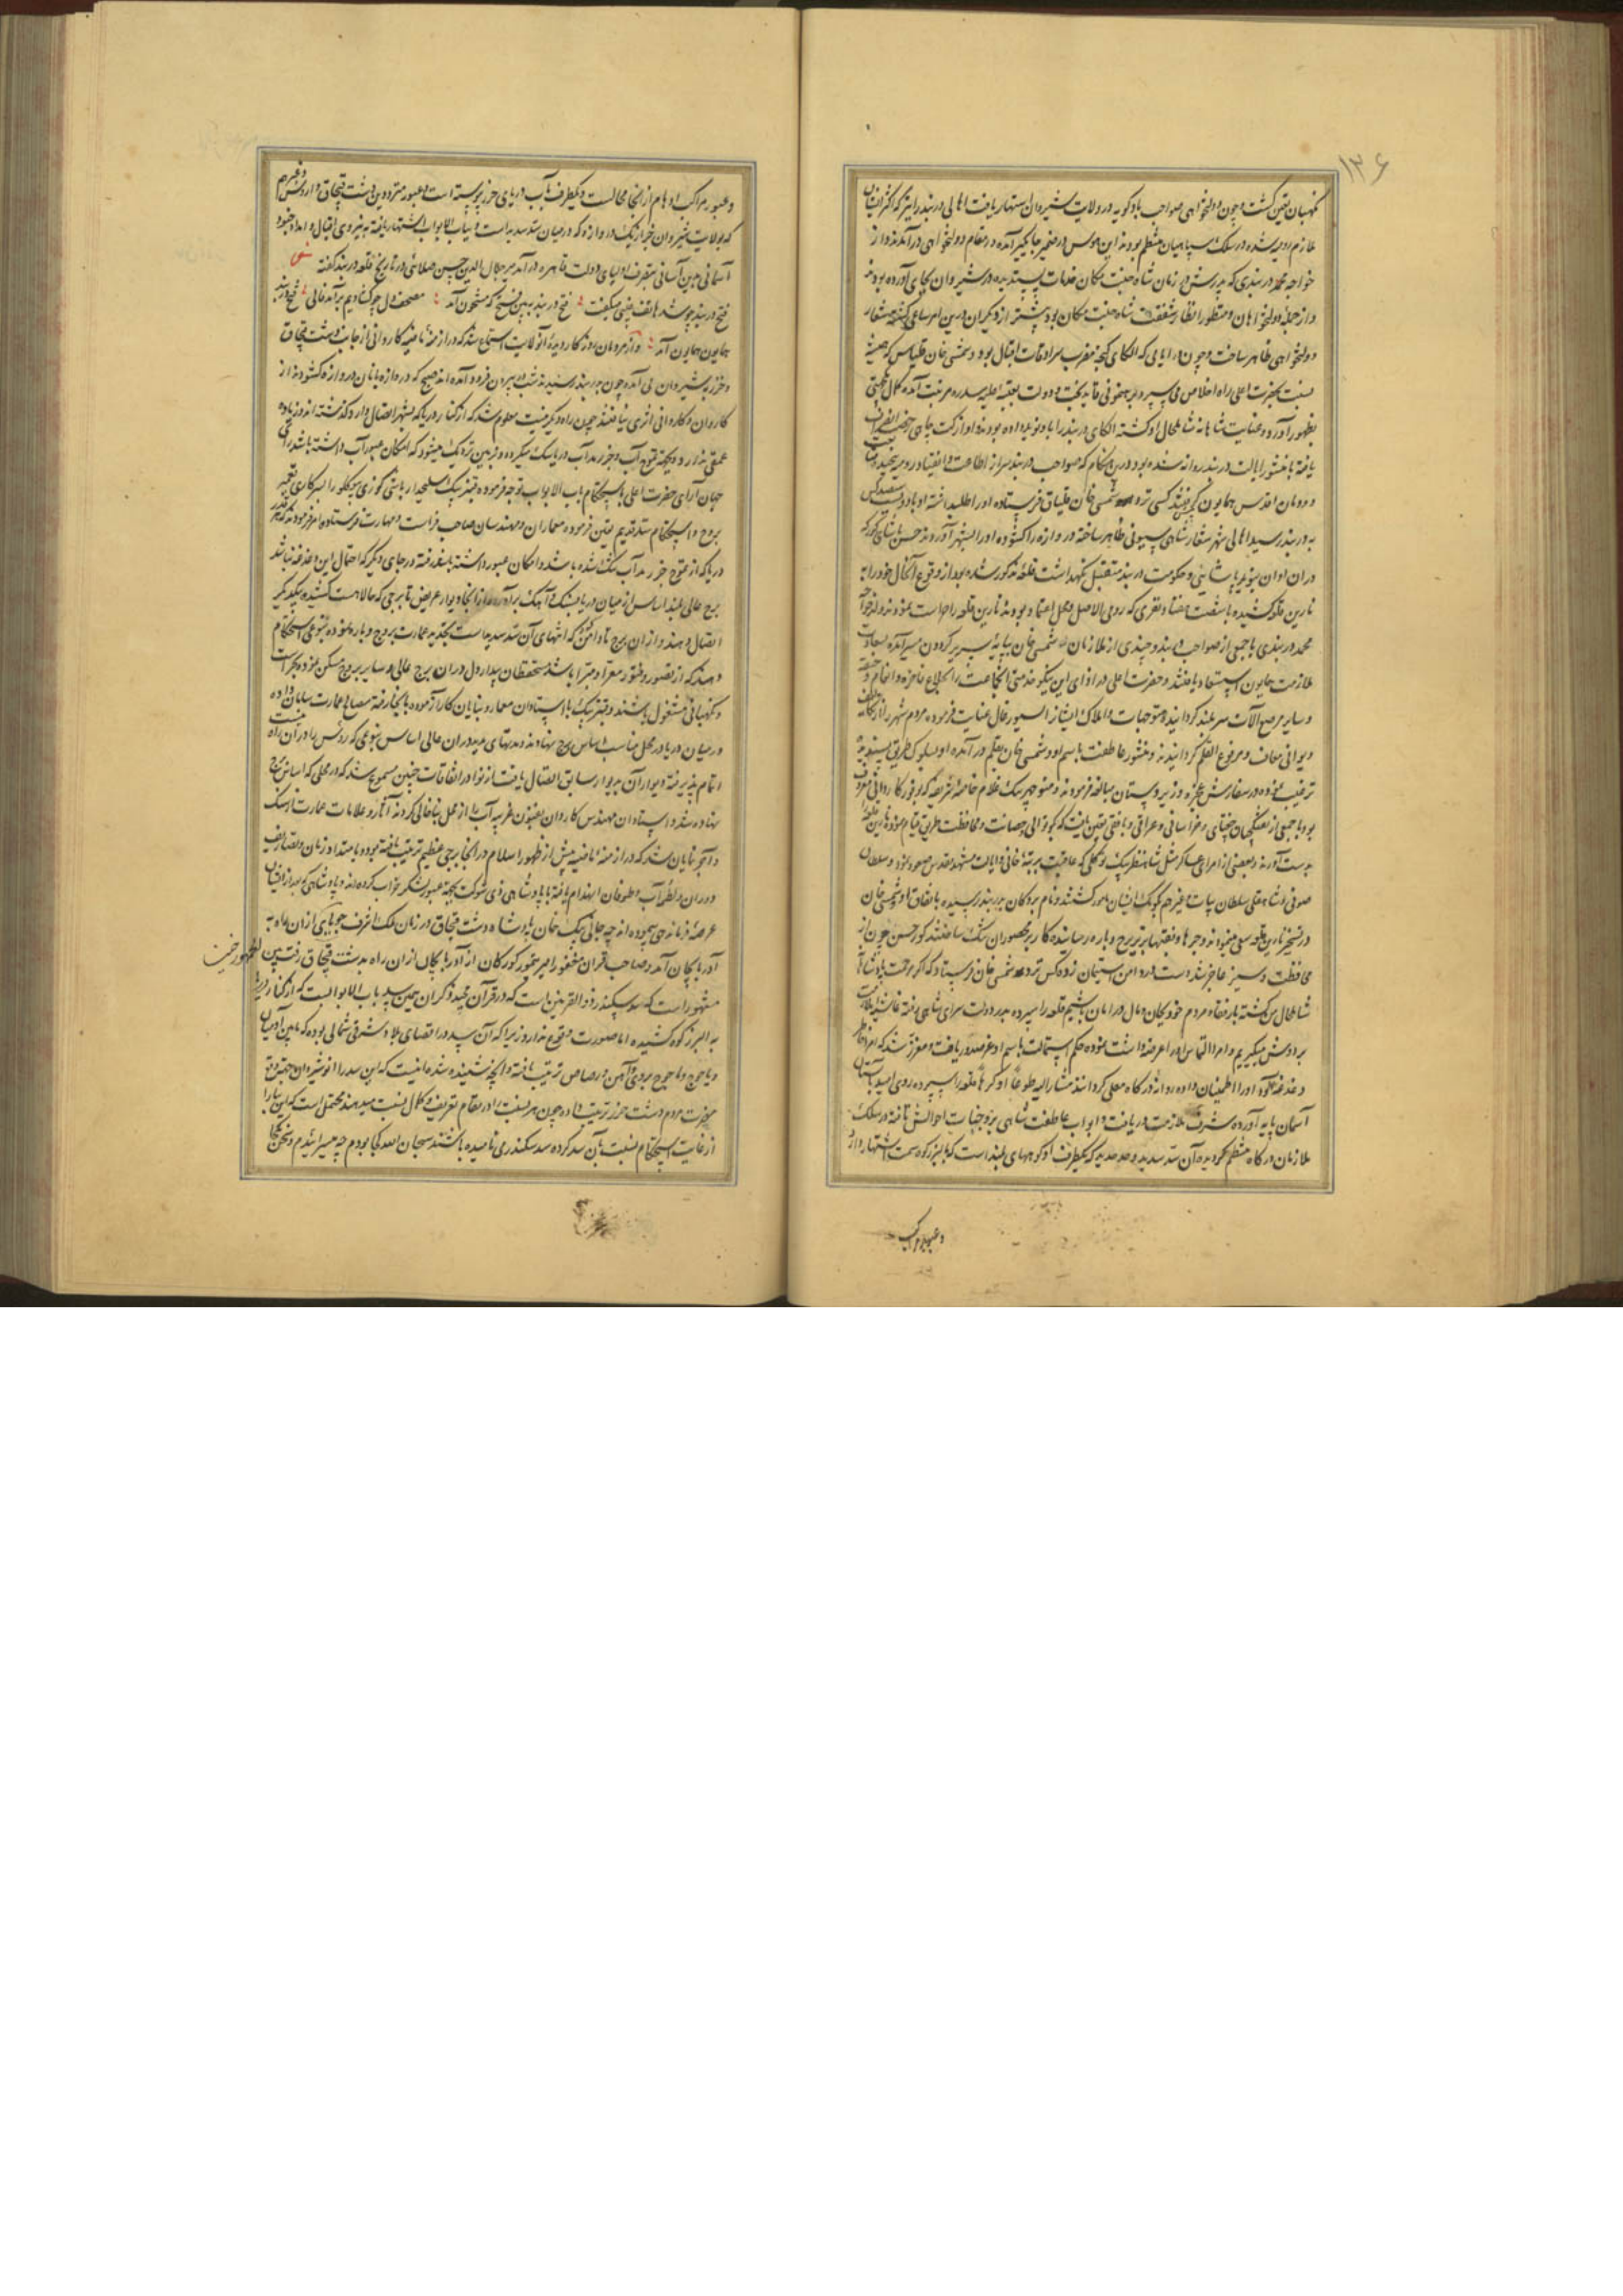 ۱۳۶
نکهبان تعین کشت و چون دولتخواهی صواحب بادکوبه در ولایت شیروان اشتهار یافت اهالی دربند را نیز که اکثر ایشان
ملازم رومیه شده در سلک سپاهیان منتظم بودند این هوس در ضمیر جایکیر آمده در مقام دولتخواهی درآمدند و از
خواجه محمد دربندی که پدرش در زمان شاه جنت مکان خدمات پسندیده در شیروان بجای آورده بود
و از جمله دولتخواهان و منظور انظار شفقت شاه جنت مکان بود پیشتر از دیکران درین امر ساعی کشته شعار
دولتخواهی ظاهر ساخت و چون در ایامی که الکای کنجه مضرب سرادقات اقبال بود و شمسی خان قلیاس که همیشه
بنسبت بحضرت اعلی راه اخلاص می سپرد برهنمونی قاید بخت و دولت بعتبه علیه سدره مرتبت آمده کمال یکجهتی
بظهور آورد و عنایت شاهانه شامل حال او کشته الکای دربند را باو نوید داده بودند و او از کت چاهی رخصت انصراف
یافته با منشور ایالت دربند روانه شده بود درین هنکام که صواحب دربند سر از اطاعت و انقیاد رومیه پیچیده
و دودمان اقدس همایون کس نزد شمسی خان قلیاق فرستاده او را طلبداشته او با
بدربند رسید اهالی شهر شعار شاهی سیونی ظاهر ساخته دروازه را کشوده او را بشهر آوردند حسن پاشای کور که
در ان اوان بنوید پاشایی و حکومت دربند متقبل نکهداشت قلعه مذکور شده بود از وقوع آنحال خود را به
نارین قلعه کشیده با شصت هفتاد نفری که رومی الاصل و محل اعتماد بودند نارین قلعه را حراست نمودند و خواجه
محمد دربندی با جمعی از صواحب دربند و چندی از ملازمان شمسی خان بپایه سریر کردون مسیر آمده بسعادت
ملازمت همایون استسعاد یافتند و حضرت اعلی در ازای این نیکو خدمتی آنجماعت را بخلاع فاخره و انعام
و سایر مرصع آلات سربلند کردانیده و متوجهات و املاک ایشانرا سیورغال عنایت فرموده مردم شهر را از تکالیف
دیوانی معاف و مرفوع القلم کردانیدند و منشور عاطفت باسم او و شمسی خان بقلم درآمده او بسلوک طریق پسندیده
ترغیب نموده در سفارش عجزه و زیردستان مبالغه فرمودند و منوچهر بیک غلام خاصه شریفه که بوفور کاردانی معروف
بود با جمعی از تفنکچیان جغتای و خراسانی و عراقی و بافقی تعین یافت که بکوتوالی و حصانت و محافظت طریق قیام نموده نارین قلعه را
بدست آورند و بعضی از امرای عساکر مثل شاه نظر بیک توکلی که عاقبت بمرتبه خانی و ایالت مشهد مقدس صعود نمود و سلطان
صوفی و شاه قلی سلطان بیات و غیرهم بکومک ایشان مامور کشتند و نام بردکان بدربند رسیده باتفاق او و شمسی خان
در تسخیر نارین قلعه سعی مینمودند و جرها و نقبها ببرج و باره رسانیده کار بر محصوران تنک ساختند کور حسن چون از
محافظت و ستیز عاجز شد دست در دامن استیمان زده کس نزد شمسی خان فرستاد که اکر مرحمت پادشاهانه
شامل حال من کشته با رفقا و مردم خود بجان و مال در امان باشیم قلعه را سپرده بدر دولت سرای شاهی رفته غاشیه ملازمت
بر دوش میکیریم و امرا التماس او را عرضه داشت نموده حکم استمالت باسم او عز صدور یافت و مقرر شد که امرا خاطر
دغدغه آلود او را اطمینان داده روانه درکاه معلی کردانند مشارالیه طوعاً او کرهاً قلعه را سپرده روی امید بآستان
آسمان پایه آورده شرف ملازمت دریافت و ابواب عاطفت شاهی بر وجنات احوالش تافته در سلک
ملازمان درکاه منتظم کردیده آن سد سدید و حد حدید که یکطرف او کوههای بلند است که بالبرز کوه سمت اشتهار دارد
و عبور مراکب
و عبور مراکب اوهام از آنجا محالست و یکطرف بآب دریای خزر پیوسته است و عبور مترددین دشت قپچاق و اروس و غیرهم
که بولایت شیروان خبر از یک دروازه که در میان سد سدید است و بباب الابواب اشتهار یافته به نیروی اقبال و امداد جنود
آسمانی بدین آسانی بتصرف اولیای دولت قاهره درآمد میر جلال الدین حسین صلائی در تاریخ قلعه دربند کفته
فتح دربند چو شد هاتف غیبی میکفت فتح دربند ببین فتح که مشحون آمد مصحف دل چو کشادیم برآمد فالی فتح دربند
همایون همایون آمد و از مردمان روزکار دیده آنولایت استماع شد که در ازمنه ماضیه کاروانی از جانب دشت قپچاق
و خزر بشیروان می آمده چون بدربند رسیدند شب در بیرون فرود آمده اند صبح که دروازه بانان دروازه کشودند از
کاروان و کاروانی اثری نیافتند چون راه دیکر نیست معلوم شد که از کنار دریا که بشهر اتصال دارد کذشته اند و زیاده
عمقی ندارد و بجهة تموج آب و جزر و مد آب دریا سبک میکردد و بزمین نزدیک میشود که امکان عبور آب داشته باشد رای
جهان آرای حضرت اعلی باستحکام باب الابواب توجه فرموده قنبر بیک سلحدار باشی کوزی بیوکلو را بسرکاری تعمیر
بروج و استحکام سد قدیم تعین فرموده معماران و مهندسان صاحب فراست و مهارت فرستاده امر فرمودند که هر قدر
دریا که از تموج جزر و مد آب تنک شده باشد و امکان عبور داشته باشد رفته در جای دیکر که احتمال این دغدغه نباشد
برج عالی بلند اساس از میان دریا بسنک و آهک برآورده از آنجا دیوار عریض تا برجی که حالا هست کشیده بیکدیکر
اتصال دهند و از ان برج تا دامن کوه که انتهای آن سد سدید است بتجدید عمارت بروج و باره نموده بنوعی استحکام
دهند که از قصور و فتور معرا و مبرا باشد و مستحفظان بیدار دل در ان برج عالی و سایر بروج مسکن نموده بحراست
و نکهبانی مشغول باشند و قنبر بیک با استادان معمار و بنایان کار آزموده بآنجا رفته مصالح عمارت سامان داده
در میان دریا در محل مناسب اساس برج نهادند و مدتهای مدید در ان عالی اساس بنوعی که روس را در آن راه نیست
اتمام پذیرفته دیوار آن بدیوار سابق اتصال یافت از نوادر اتفاقات چنین مسموع شد که در محلی که اساس برج
نهاده شد و استادان مهندس کاردان بفنون غریبه آب را از محل بنا خالی کردند آثار و علامات عمارت از سنک
و آجر نمایان شد که در ازمنه ماضیه پیش از ظهور اسلام در آنجا برجی عظیم ترتیب یافته بوده و بامتداد زمان و تصاریف
دوران و لطمه آب و طوفان انهدام یافته یا پادشاهی ذی شوکت بجهة عبور لشکر خراب کرده اند و پادشاهی که بعد از ایشان
عرصه زمانه می پیموده اند چه جانی بیک خان پادشاه دشت قپچاق در زمان ملک اشرف چوپانی از ان راه به
آذربایجان آمد و صاحب قران مغفور امیر تیمور کورکان از آذربایجان از ان راه بدشت قپچاق رفت پس
مشهور است که سد سکندر ذوالقرنین است که در قرآن مجید ذکر ان همین سد باب الابوابست که از کنار دریا
به البرز کوه کشیده اما صورت وقوع ندارد زیرا که آن سد در اقصای بلاد شرقی شمالی بوده که مابین آدمیان
و یاجوج و ماجوج بروی و آهن و رصاص ترتیب یافته و آنچه شنیده شده اینست که این سد را انوشیروان بجهة دفع
مضرت مردم دشت خزر ترتیب داده چون هر نسبت را در مقام تعریف و کمال نسبت میدهند محتمل است که این بنا را
از غایت استحکام نسبت بآن سد کرده سد سکندری نامیده باشند سبحان الله کجا بودم چه میسرایم و سخن کجا